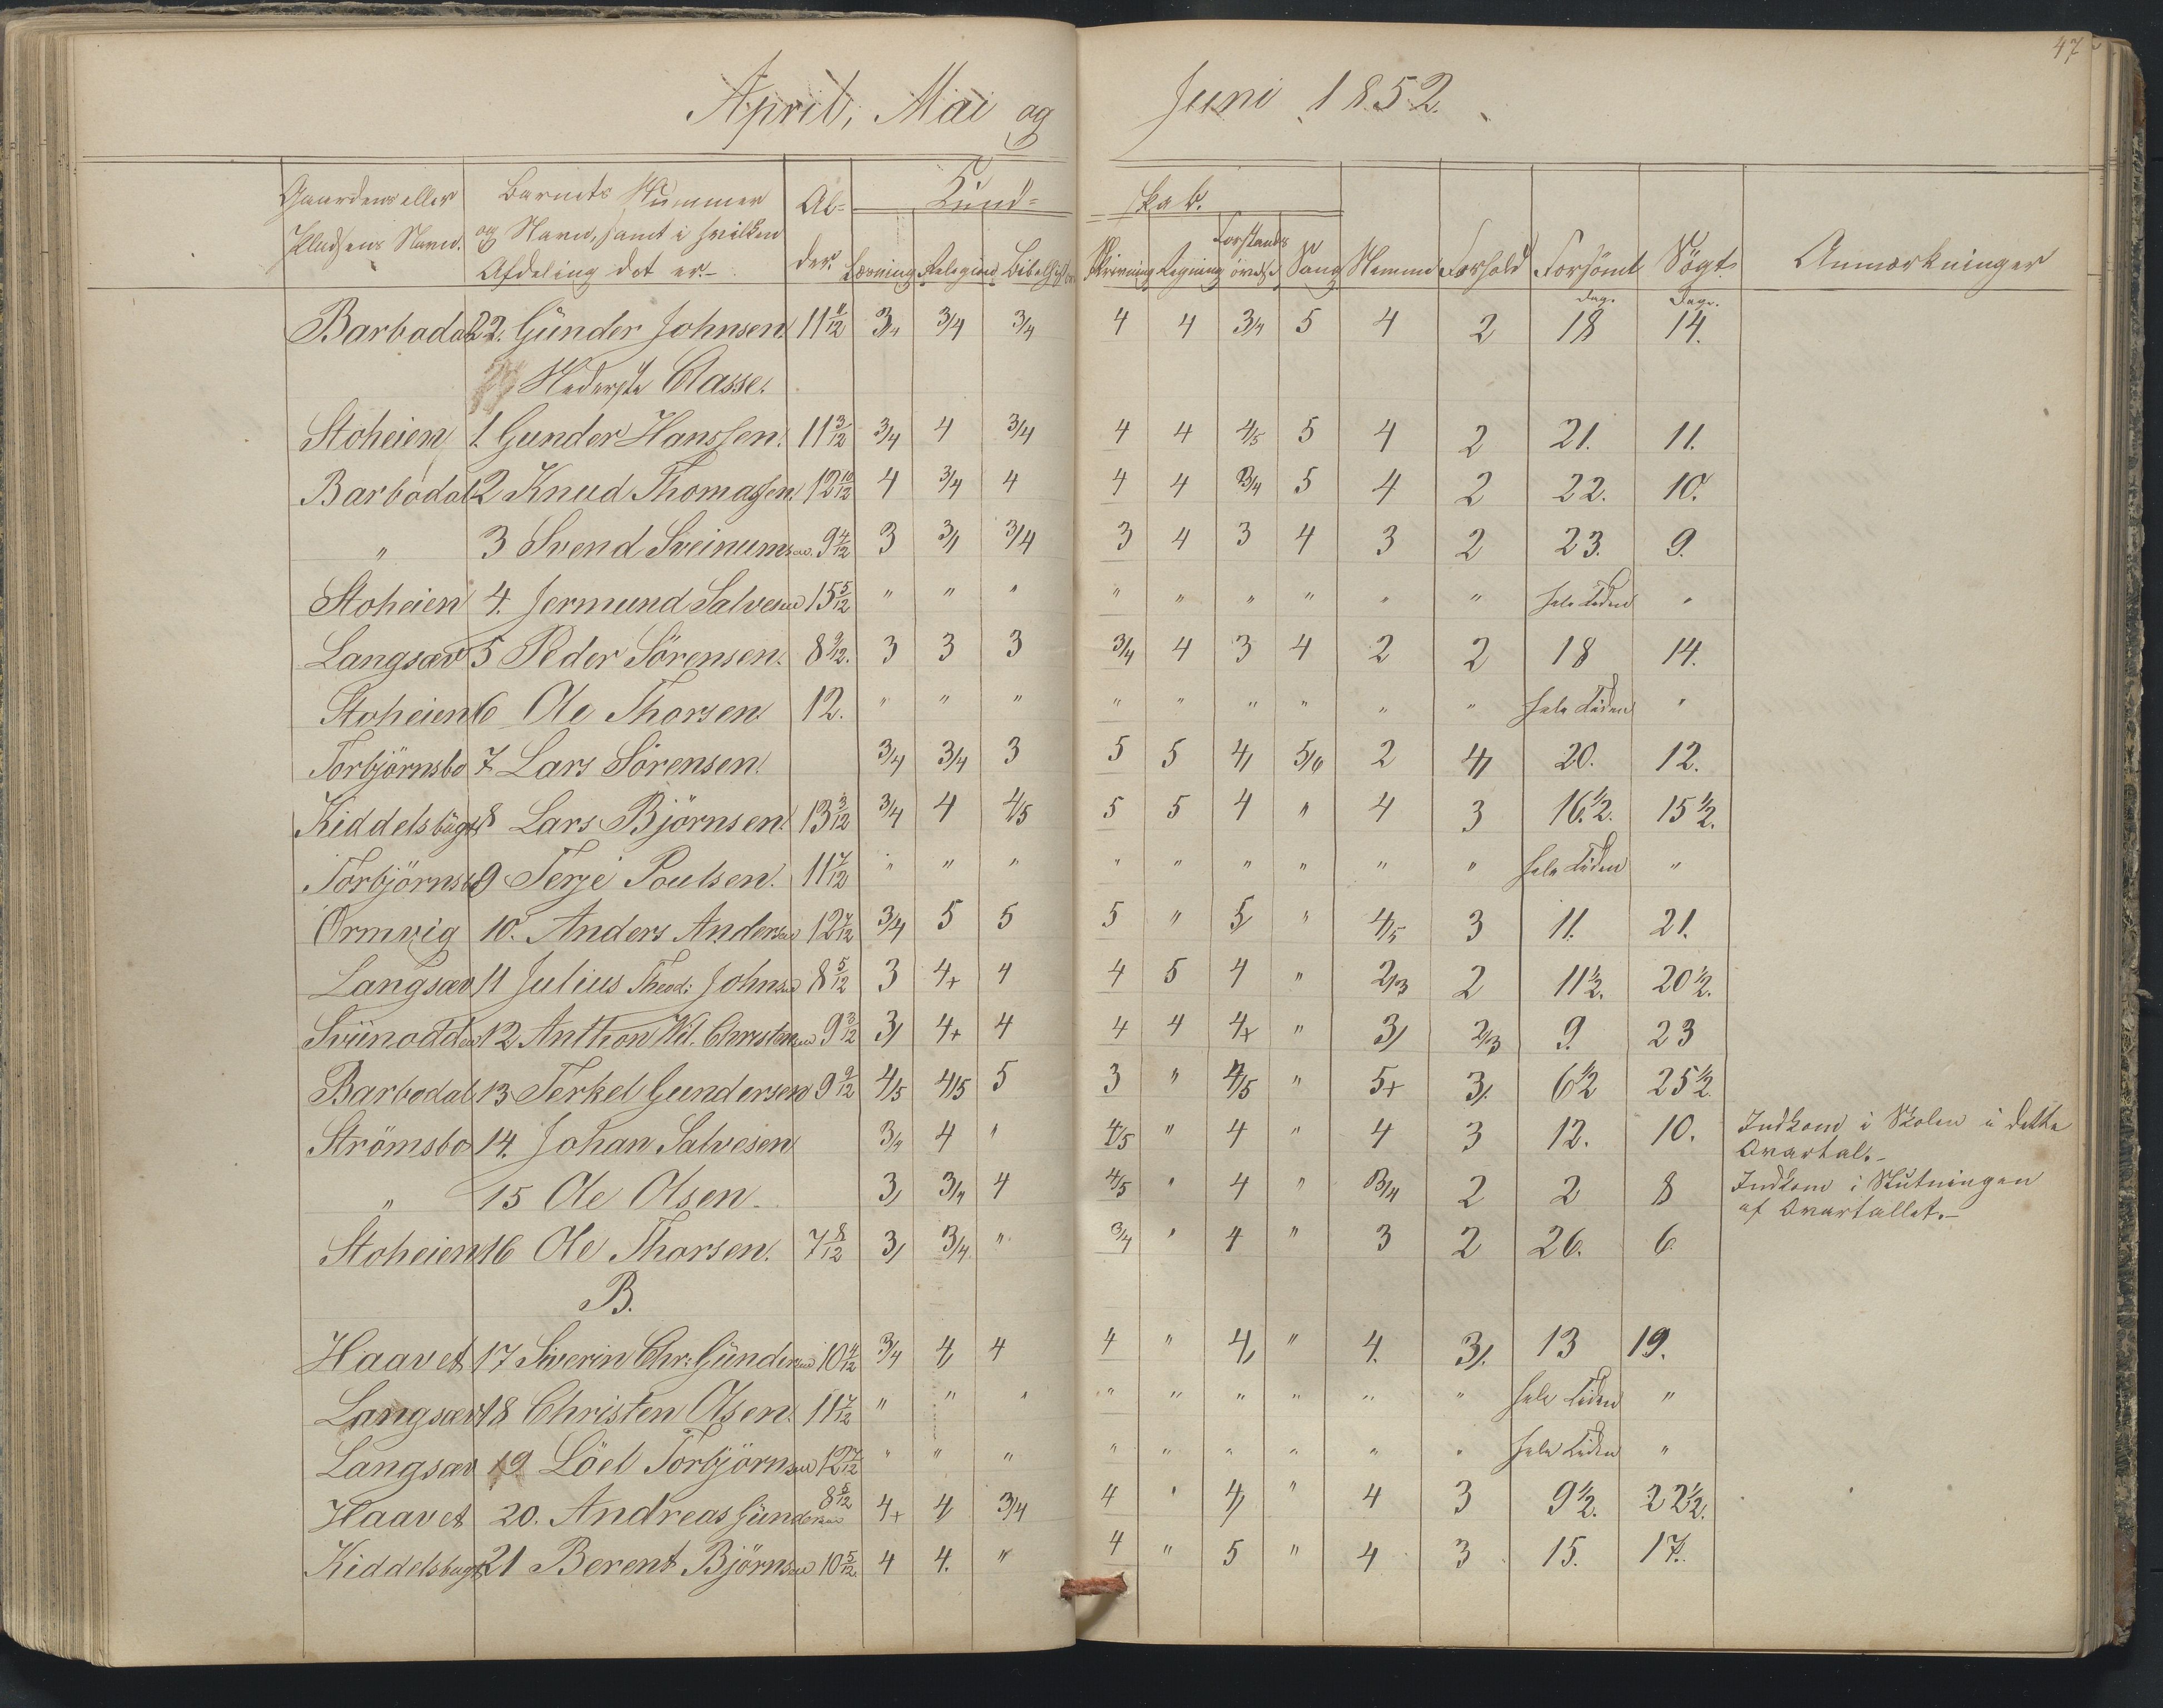 47
April, Mai og Juni 1852.
Gaardens eller Pladsens Navn. Barnets Nummer og Navn, samt i hvilken Afdeling det er.- Al-der. Kund-skab. Læsning Religion Bibelhist Skrivning Regning Forstands øvelse Sang Nemme Forhold Forsömt Dage. Sögt Dage. Anmærkninger
Barbodal 22. Günder Johnsen. 11 11/12 3/4 3/4 3/4 4 4 3/4 5 4 2 18 14.
Nederste Classe.
Stoheien 1. Gunder Hanssen. 11 3/12 3/4 4 3/4 4 4 4/5 5 4 2 21. 11.
Barbodal 2 Knud Thomassen 12 10/12 4 3/4 4 4 4 3/4 5 4 2 22. 10.
" 3 Svend Sveinumsen. 9 4/12 3 3/4 3/4 3 4 3 4 3 2 23. 9.
Stoheien 4. Jermund Salvesen 15 5/12 " " " " " " " " " hele Tiden "
Langsæv 5 Peder Sörensen. 8 9/12. 3 3 3 3/4 4 3 4 2 2 18 14.
Stoheien 6 Ole Thorsen 12. " " " " " " " " " hele Tiden "
Torbjörnsbo 7 Lars Sörensen. 3/4 3/4 3 5 5 4/ 5/6 2 4/ 20. 12.
Kiddelsbugt 8 Lars Björnsen. 13 3/12 3/4 4 4/5 5 5 4 " 4 3 16 1/2. 15 1/2.
Torbjörnsb 9 Terje Poulsen. 11 7/12 " " " " " " " " " hele Tiden "
Ormvig 10. Anders Andersen 12 7/12 3/4 5 5 5 " 5/ " 4/5 3 11. 21.
Langsæv 11 Julius Theod: Johnsen 8 5/12 3 4+ 4 4 5 4 " 2/3 2 11 1/2. 20 1/2.
Sviinodden 12 Anthon Wil. Christensen 9 3/12 3/ 4+ 4 4 4 4+ " 3/ 2/3 9. 23
Barbodal 13 Terkel Gundersen 9 9/12 4/5 4/5 5 3 " 4/5 " 5+ 3/. 6 1/2 25 1/2
Strömsbo 14. Johan Salvesen 3/4 4 " 4/5 " 4 " 4 3 12. 10. Indkom i Skolen i dette
Qvartal.-
" 15 Ole Olsen. 3/ 3/4 4 4/5 " 4 " 3/4 2 2 8 Indkom i Slutningen
af Qvartallet.-
Stoheien 16 Ole Thorsen. 7 8/12 3/ 3/4 " 3/4 " 4 " 3 2 26. 6.
B.
Haavet 17 Siverin Chr: Gündersen 10 4/12 3/4 4/ 4 4 " 4/ " 4. 3/. 13 19.
Langsæv 18 Christen Olsen. 11 7/12 " " " " " " " " " hele Tiden "
Langsæv 19 Löel Torbjörnsen 12 7/12 " " " " " " " " " hele Tiden "
Haavet 20. Andreas Gündersen 8 8/12 4+ 4/ 3/4 4 " 4/ " 4 3 9 1/2. 22 1/2.
Kiddelsbugt 21 Berent Björnsen 10 5/12. 4 4. " 4 " 5 " 4 3 15. 17.